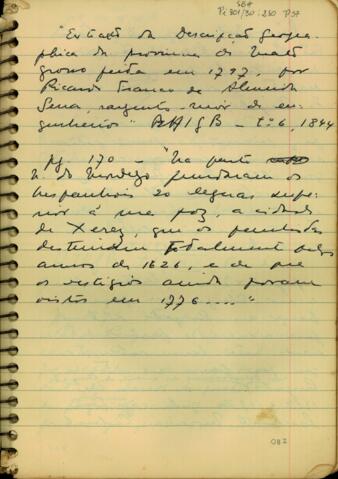 SBH
Pi 301/30 : 230 P 37
"Extracto da Descripção Geogra-
phica da provincia de Matto
Grosso feita em 1797, por
Ricardo Franco de Almeida
Serra, sargento-mor de en-
genheiros" RHIGB - tº 6, 1844
pg. 170 - "Na parte
N. do Mondego fundaram os
hespanhois 20 leguas supe-
rior á sua foz, a cidade
de Xerez, que os paulistas
destruiram totalmente pelos
annos de 1626, e de que
os vestigios ainda foram
vistos em 1776...."
082